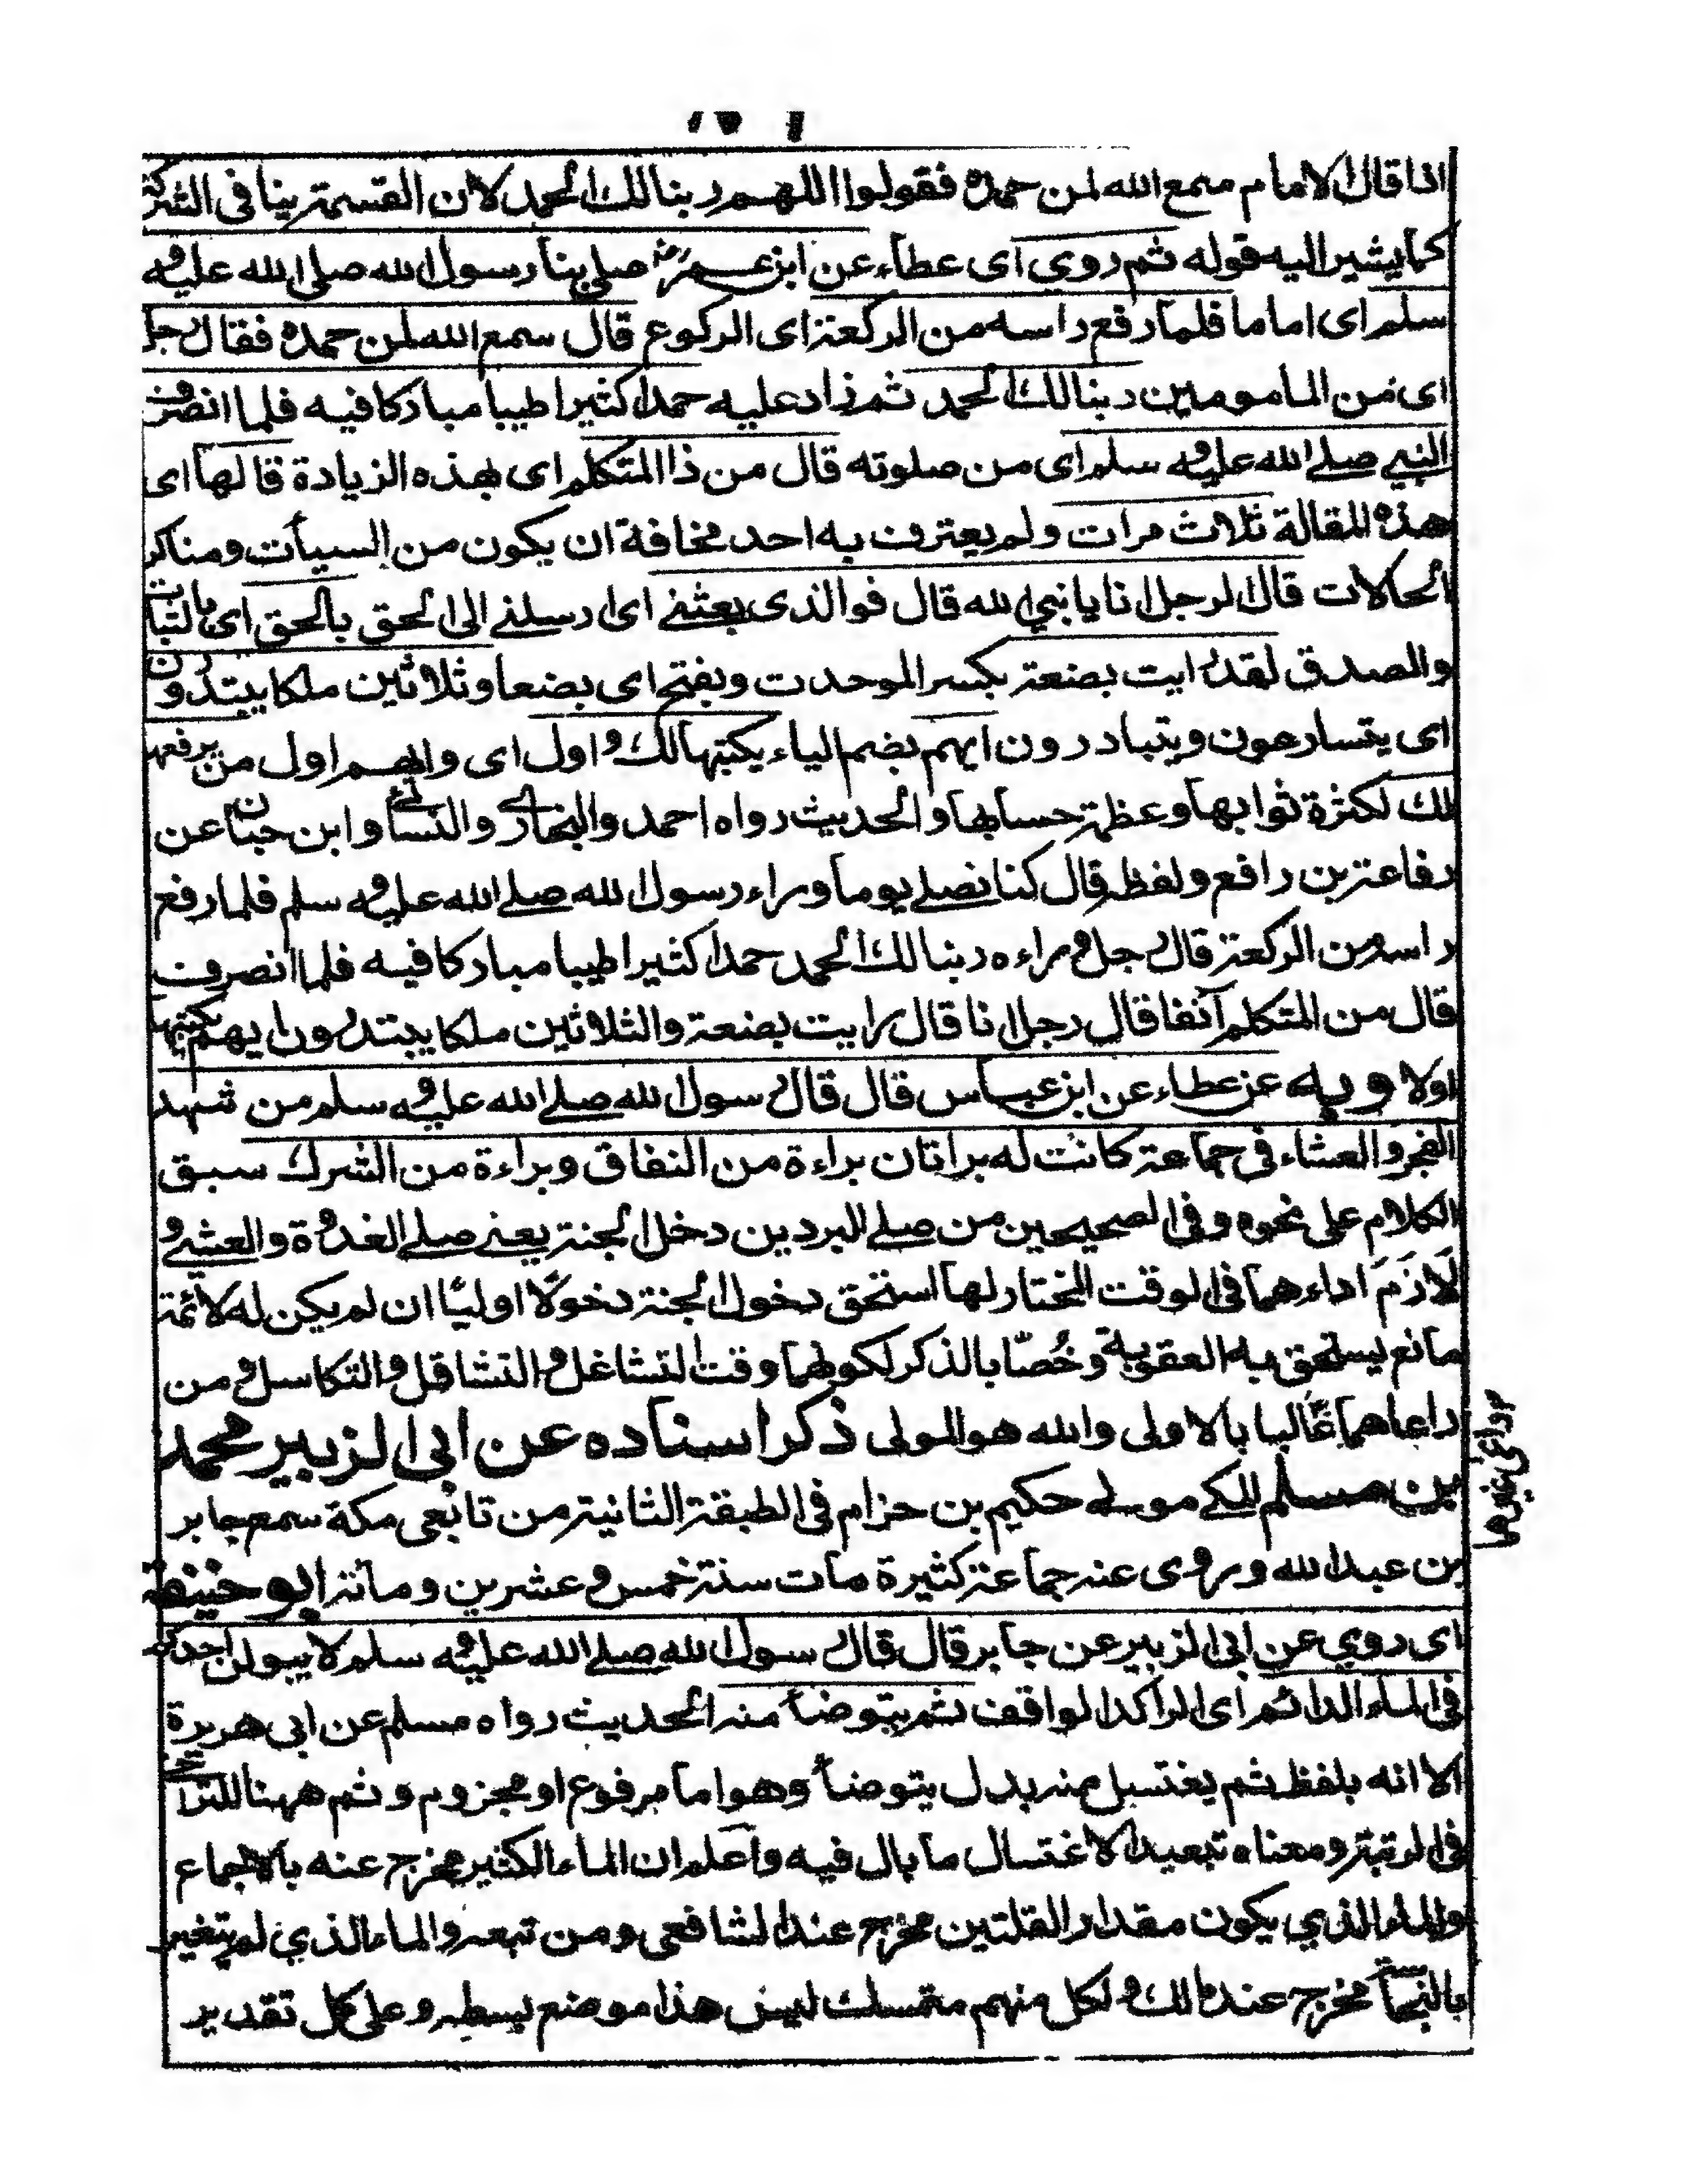 اذا قال الامام سمع الله لمن حمده فقولوا اللهم ربنا لك الحمد لان القسمة بيننا في الشركة
كما يشير اليه قوله ثم روي اى عطاء عن ابن عمر رض صلى بنا رسول الله صلى الله عليه و
سلم اى اماما فلما رفع راسه من الركعة اى الركوع قال سمع الله لمن حمده فقال رجل
اى من المامومين ربنا لك الحمد ثم زاد عليه حمدا كثيرا طيبا مباركا فيه فلما انصرف
النبي صلى الله عليه و سلم اى من صلوته قال من ذا المتكلم اى بهذه الزيادة قالها اى
هذه المقالة ثلاث مرات ولم يعترف به احد مخافة ان يكون من السيأت ومناكر
الحالات قال الرجل انا يا نبي الله قال فوالذى بعثني اى ارسلني الى الحق بالحق اى بالثبات
والصدق لقد رايت بضعة بكسر الموحدت وبفتح اى بضعا وثلاثين ملكا يبتدرون
اى يتسارعون ويتبادرون ايهم بضم الياء يكتبها لك و اول اى وايهم اول من يرفعها
لك لكثرة ثوابها وعظمة حسابها والحديث رواه احمد والبخارى والنسائى وابن حبان عن
رفاعة بن رافع ولفظه قال كنا نصلي يوما وراء رسول الله صلى الله عليه و سلم فلما رفع
راسه من الركعة قال رجل وراءه ربنا لك الحمد حمدا كثيرا طيبا مباركا فيه فلما انصرف
قال من المتكلم آنفا قال رجل انا قال رايت بضعة والثلاثين ملكا يبتدرون ايهم يكتبها
اولا وبه عن عطاء عن ابن عباس قال قال رسول الله صلى الله عليه و سلم من شهد
الفجر والعشاء في جماعة كانت له براتان براءة من النفاق وبراءة من الشرك سبق
الكلام على نحوه وفي الصحيحين من صلى البردين دخل الجنة يعني صلى الغدوة والعشي و
لازم اداءهما في الوقت المختار لها استحق دخول الجنة دخولا اوليا ان لم يكن له لائمة
مانع يستحق به العقوبة وخصا بالذكر لكونهما وقت التشاغل و التثاقل و التكاسل و من
راعاهما غالبا بالاولى والله هو المولى ذكر اسناده عن ابى الزبير محمد
بن مسلم المكى مولى حكيم بن حزام في الطبقة الثانية من تابعى مكة سمع جابر
بن عبد الله وروى عنه جماعة كثيرة مات سنة خمس و عشرين ومائة ابو حنيفة
اى روي عن ابى الزبير عن جابر قال قال رسول الله صلى الله عليه و سلم لا يبولن احدكم
في الماء الدائم اى الراكد الواقف ثم يتوضأ منه الحديث رواه مسلم عن ابى هريرة
الا انه بلفظ ثم يغتسل منه بدل يتوضأ وهو اما مرفوع او مجزوم وثم ههنا للتراخي
في الرتبة ومعناه تبعيد الاغتسال ما بال فيه واعلم ان الماء الكثير مخرج عنه بالاجماع
والماء الذي يكون مقدار القلتين مخرج عند الشافعى ومن تبعه والماء الذي لم يتغير
بالنجاسة مخرج عند مالك و لكل منهم متمسك ليس هذا موضع بسطه وعلى كل تقدير